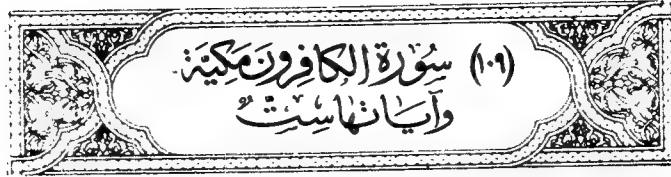 (١٠٩) سُورَةُ الكَافِرُونَ مَكِيَّة
وَآيَاتهَا سِتٌّ